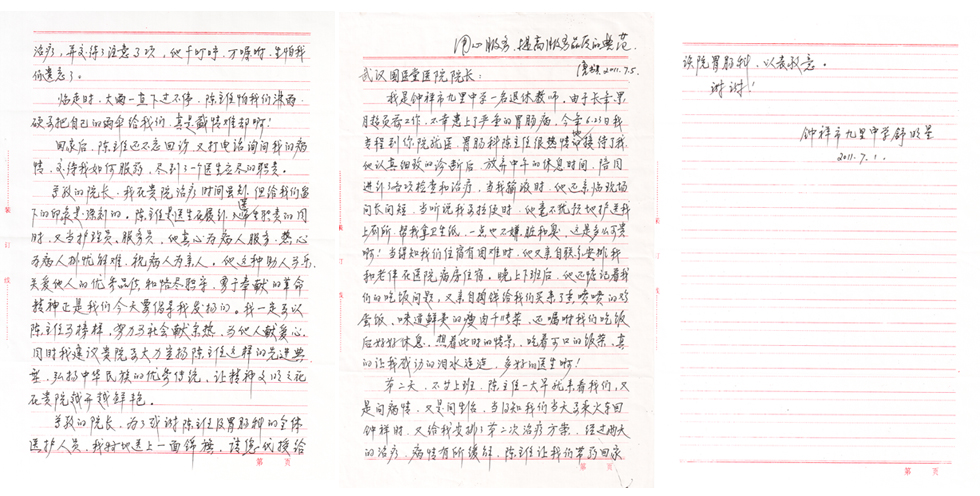 用心服务、提高服务品质的典范
2011.7.5.
武汉国医堂医院院长：
我是钟祥市九里中学一名退休教师。由于长年累
月超负荷工作，不幸患上了严重的胃肠病，今年6.25日我
专程到你院就医，胃肠科陈主任很热情地接待了我
他认真细致的诊断后，放弃中午的休息时间，陪同
进行了各项检查和治疗，当我输液时，他还亲临现场
问长问短，当听说我要拉便时，他毫不犹豫地护送我
上厕所，帮我拿卫生纸，一点也不嫌脏和臭，这是多么可贵
啊！当得知我们住宿有困难时，他又亲自联系安排我
和老伴在医院病房住宿。晚上下班后，他还惦记着我
们的吃饭问题，又亲自掏钱给我们买来了香喷喷的鸡
蛋饭，味道鲜美的瘦肉千张菜，还嘱咐我们吃饭
后好好休息，想着此时的情景，吃着可口的饭菜，真
的让我感动的泪水连连，多好的医生啊！
第二天，不等上班，陈主任一大早就来看我们，又
是问病情，又是问
当得知我们当天要乘火车回
钟祥时，又给我安排了第二次治疗方案，经过两天
的治疗，病情有所缓解，陈主任让我们带药回家
治疗，并交待了注意事项，他千叮咛，万嘱咐，生怕我
们遗忘了。
临走时，大雨一直下过不停，陈主任怕我们淋雨
硬要把自己的雨伞给我们，真是盛情难却啊！
回家后，陈主任还不忘回访，又打电话询问我的病
情，交待我如何服药，尽到了一个医生应尽的职责。
尊敬的院长，我在贵院治疗时间虽短，但给我们留
下的印象是深刻的。陈主任是医生在履行医生职责的同
时，又当护理员、服务员，他真心为病人服务，热心
为病人排忧解难，视病人为亲人。他这种助人为乐，
关爱他人的优秀品质和恪尽职守，勇于奉献的革命
精神正是我们今天要倡导和发扬的。我一定要以
陈主任为榜样，努力为社会献余热，为他人献爱心，
同时我建议贵院要大力宣扬陈主任这样的先进典
型，弘扬中华民族的优秀传统，让精神文明之花
在贵院越开越鲜艳。
尊敬的院长，为了感谢陈主任及胃肠科的全体
医护人员，我特地送上一面锦旗，请您代授给
该院胃肠科，以表敬意。
谢谢！
钟祥市九里中学舒明呈
2011.7.1.
装
订
线
第 页